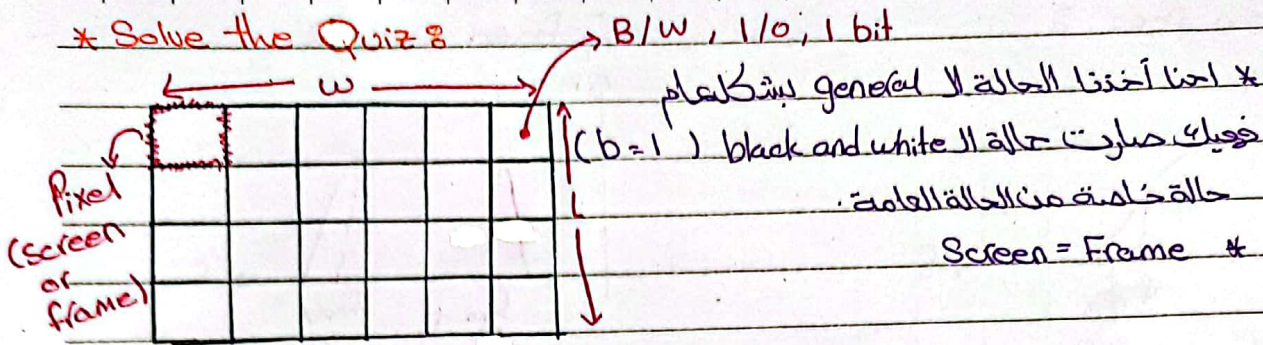 * Solve the Quiz :
B/W, 1/0, 1 bit
w
* احنا أخذنا الحالة ال general بشكل عام
صارت حالة ال black and white (b=1)
حالة خاصة من الحالة العامة.
* Screen = Frame
L
Pixel
(screen
or
frame)